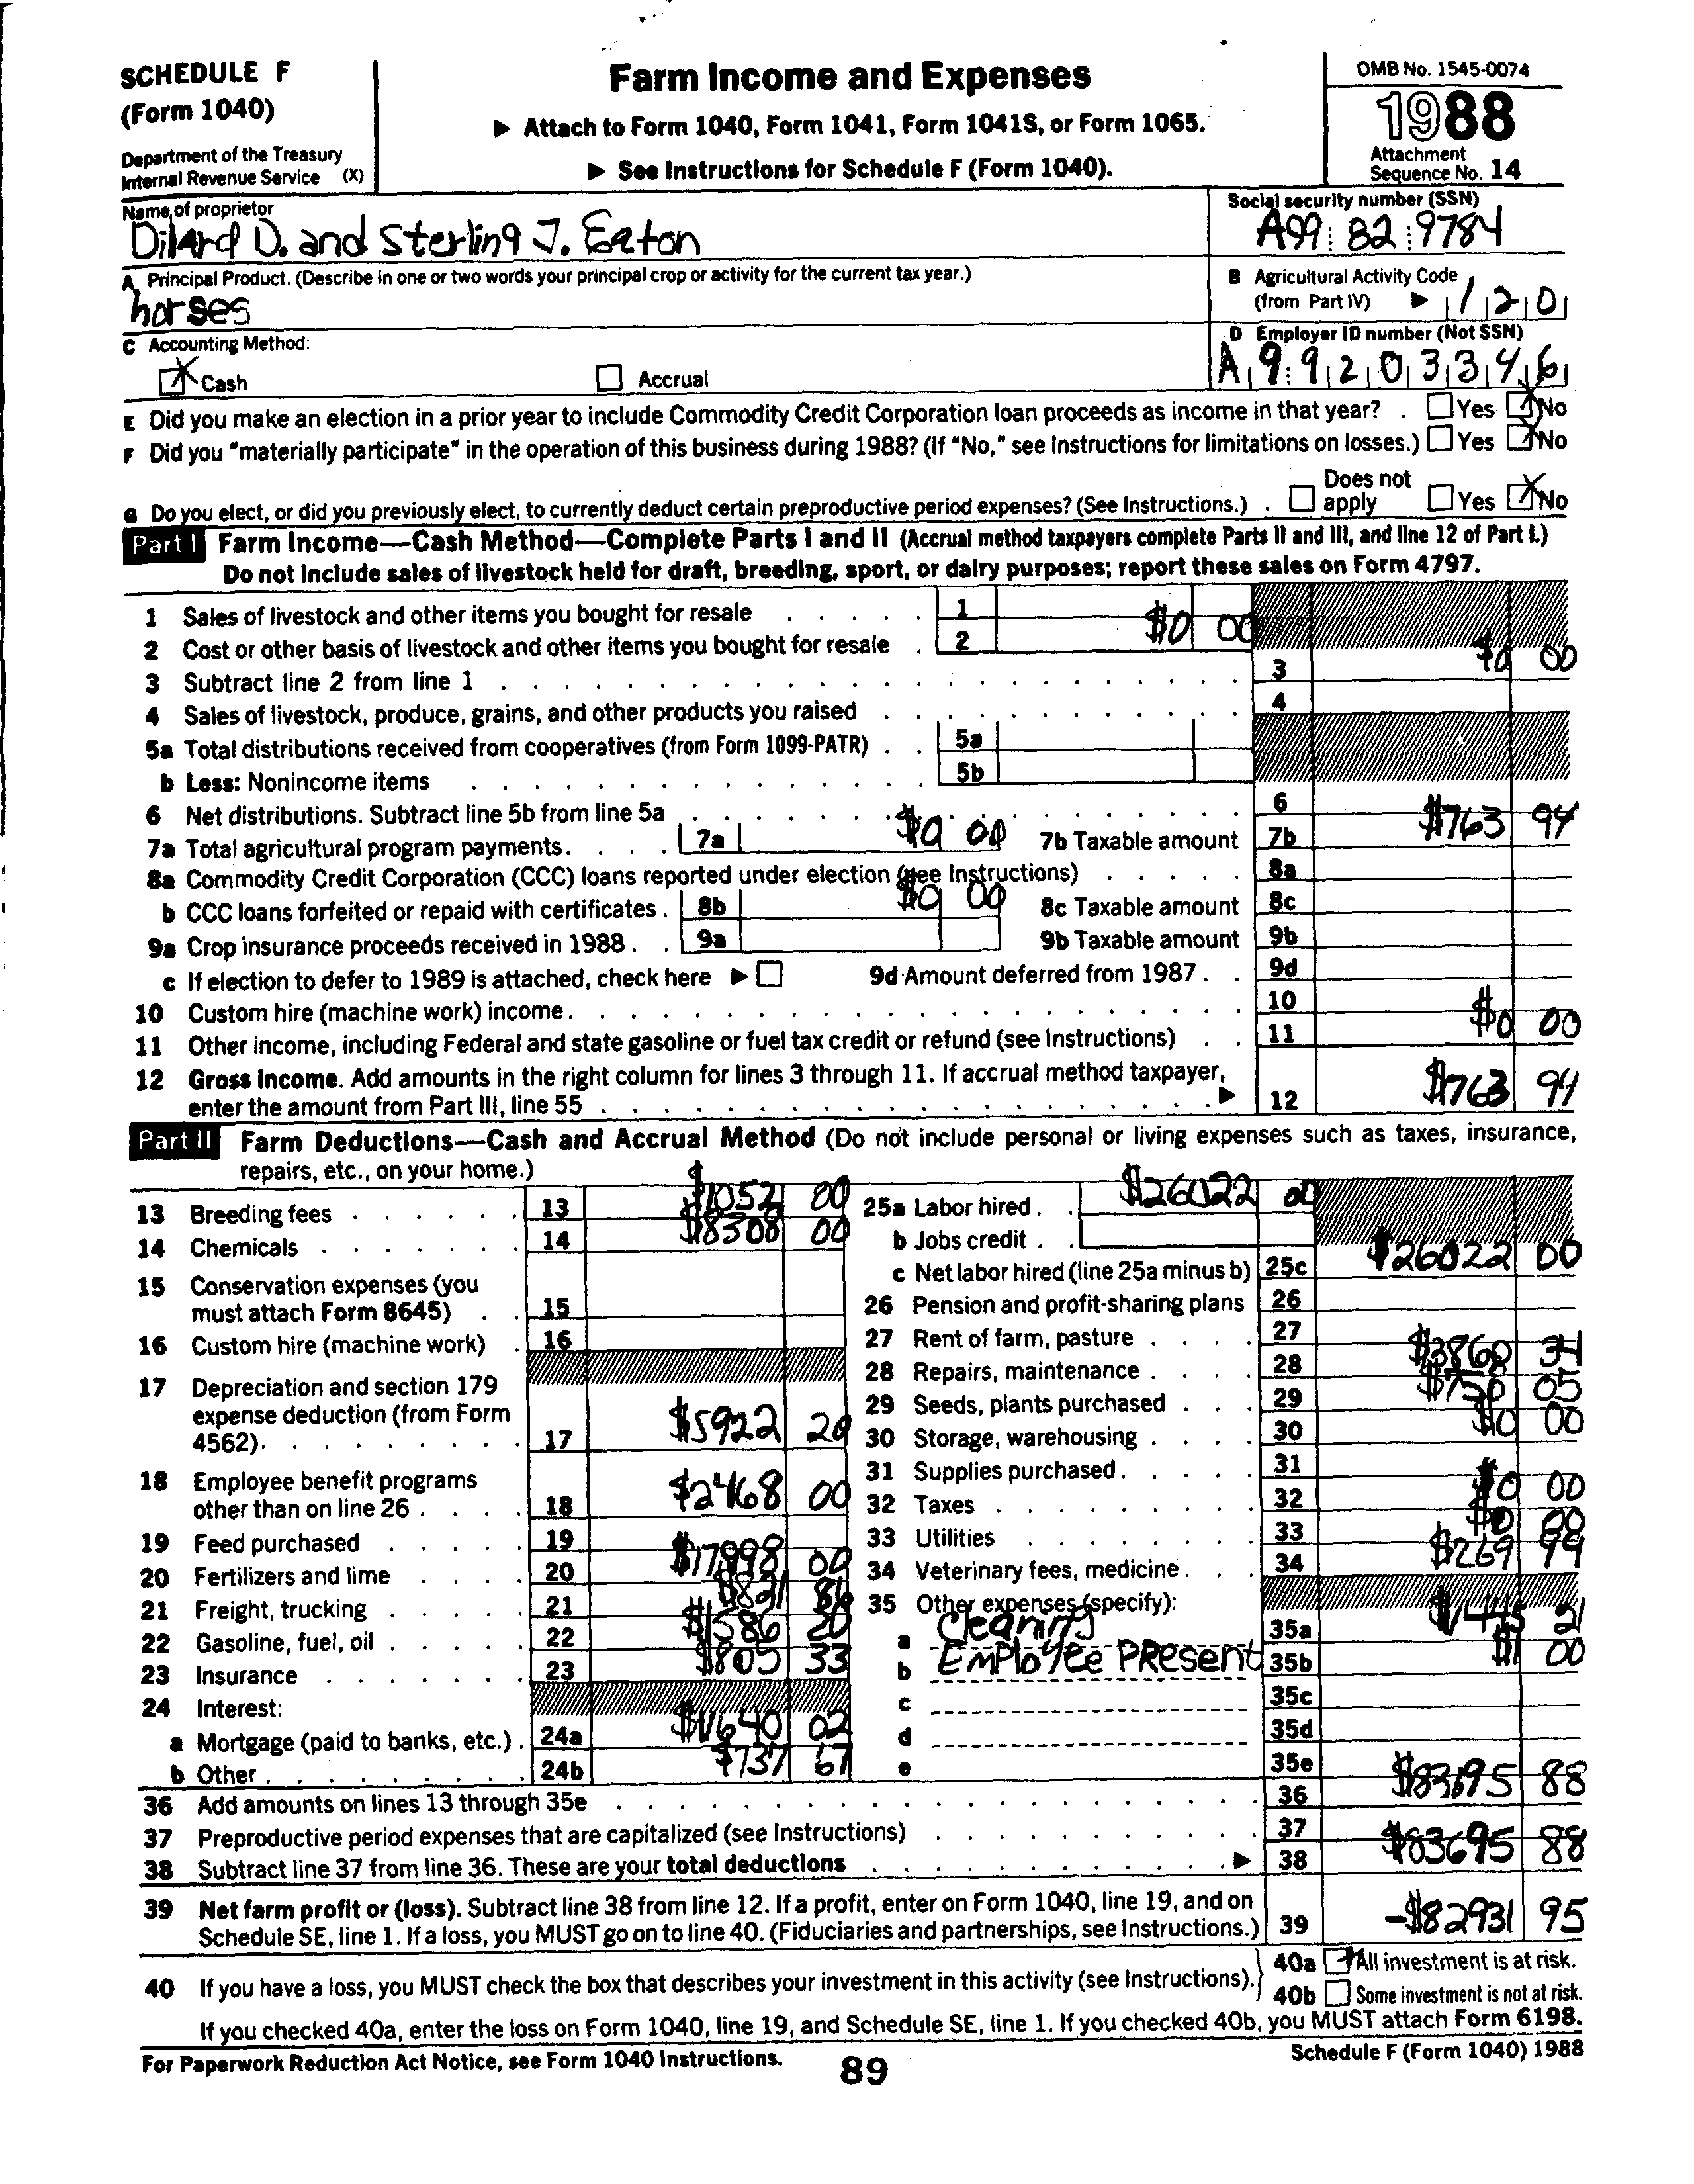 SCHEDULE F
(Form 1040)
Department of the Treasury
Internal Revenue Service (X)
Farm Income and Expenses
▶ Attach to Form 1040, Form 1041, Form 1041S, or Form 1065.
▶ See Instructions for Schedule F (Form 1040).
OMB No. 1545-0074
1988
Attachment
Sequence No. 14
Name of proprietor
Dilard D. and Sterling J. Eaton
Social security number (SSN)
A99 82 9784
A Principal Product. (Describe in one or two words your principal crop or activity for the current tax year.)
horses
B Agricultural Activity Code
(from Part IV) ▶ 1 2 0
C Accounting Method:
Cash Accrual
D Employer ID number (Not SSN)
A 9 9 2 0 3 3 4 6
E Did you make an election in a prior year to include Commodity Credit Corporation loan proceeds as income in that year? . Yes No
F Did you "materially participate" in the operation of this business during 1988? (If "No," see Instructions for limitations on losses.) Yes No
G Do you elect, or did you previously elect, to currently deduct certain preproductive period expenses? (See Instructions.) . Does not apply Yes No
Part I Farm Income—Cash Method—Complete Parts I and II (Accrual method taxpayers complete Parts II and III, and line 12 of Part I.)
Do not include sales of livestock held for draft, breeding, sport, or dairy purposes; report these sales on Form 4797.
1 Sales of livestock and other items you bought for resale 1
2 Cost or other basis of livestock and other items you bought for resale 2 $0 00
3 Subtract line 2 from line 1 3 $0 00
4 Sales of livestock, produce, grains, and other products you raised 4
5a Total distributions received from cooperatives (from Form 1099-PATR) 5a
b Less: Nonincome items 5b
6 Net distributions. Subtract line 5b from line 5a 6
7a Total agricultural program payments. 7a $0 00 7b Taxable amount 7b $763 94
8a Commodity Credit Corporation (CCC) loans reported under election (see Instructions) 8a
b CCC loans forfeited or repaid with certificates. 8b $0 00 8c Taxable amount 8c
9a Crop insurance proceeds received in 1988. 9a 9b Taxable amount 9b
c If election to defer to 1989 is attached, check here ▶ 9d Amount deferred from 1987. 9d
10 Custom hire (machine work) income. 10
11 Other income, including Federal and state gasoline or fuel tax credit or refund (see Instructions) 11 $0 00
12 Gross Income. Add amounts in the right column for lines 3 through 11. If accrual method taxpayer,
enter the amount from Part III, line 55 ▶ 12 $763 94
Part II Farm Deductions—Cash and Accrual Method (Do not include personal or living expenses such as taxes, insurance,
repairs, etc., on your home.)
13 Breeding fees 13 $1052 00
14 Chemicals 14 $18308 00
15 Conservation expenses (you
must attach Form 8645) 15
16 Custom hire (machine work) 16
17 Depreciation and section 179
expense deduction (from Form
4562). 17 $5922 20
18 Employee benefit programs
other than on line 26 18 $2468 00
19 Feed purchased 19
20 Fertilizers and lime 20 $17998 00
21 Freight, trucking 21 $821 86
22 Gasoline, fuel, oil 22 $1586 20
23 Insurance 23 $805 33
24 Interest:
a Mortgage (paid to banks, etc.) 24a $1640 02
b Other 24b $737 67
25a Labor hired $26022 00
b Jobs credit
c Net labor hired (line 25a minus b) 25c $26022 00
26 Pension and profit-sharing plans 26
27 Rent of farm, pasture 27
28 Repairs, maintenance 28 $3860 34
29 Seeds, plants purchased 29 $758 05
30 Storage, warehousing 30 $0 00
31 Supplies purchased. 31
32 Taxes 32 $0 00
33 Utilities 33 $0 00
34 Veterinary fees, medicine. 34 $269 99
35 Other expenses (specify):
a Cleaning 35a $1445 21
b Employee Present 35b $1 00
c 35c
d 35d
e 35e
36 Add amounts on lines 13 through 35e 36 $83695 88
37 Preproductive period expenses that are capitalized (see Instructions) 37
38 Subtract line 37 from line 36. These are your total deductions ▶ 38 $83695 88
39 Net farm profit or (loss). Subtract line 38 from line 12. If a profit, enter on Form 1040, line 19, and on
Schedule SE, line 1. If a loss, you MUST go on to line 40. (Fiduciaries and partnerships, see Instructions.) 39 -$82931 95
40 If you have a loss, you MUST check the box that describes your investment in this activity (see Instructions).
40a All investment is at risk.
40b Some investment is not at risk.
If you checked 40a, enter the loss on Form 1040, line 19, and Schedule SE, line 1. If you checked 40b, you MUST attach Form 6198.
For Paperwork Reduction Act Notice, see Form 1040 Instructions.
89
Schedule F (Form 1040) 1988